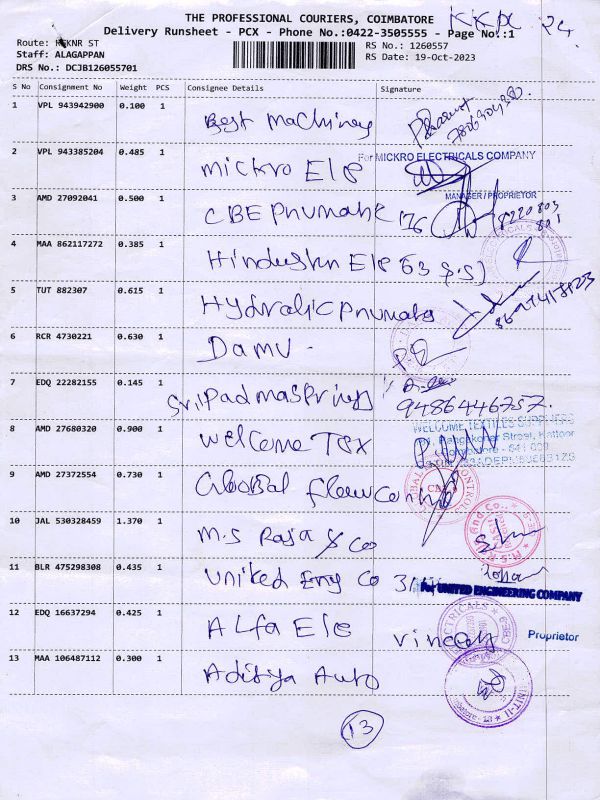 THE PROFESSIONAL COURIERS, COIMBATORE
KKPL 24
Delivery Runsheet - PCX - Phone No.:0422-3505555 - Page No.:1
Route: KKNR ST
RS No.: 1260557
Staff: ALAGAPPAN
RS Date: 19-Oct-2023
DRS No.: DCJB126055701
S No Consignment No Weight PCS Consignee Details Signature
1 VPL 943942900 0.100 1 Best Machines
2 VPL 943385204 0.485 1 Mickro Ele
For MICKRO ELECTRICALS COMPANY
MANAGER / PROPRIETOR
3 AMD 27092041 0.500 1 CBE Pnumatic
4 MAA 862117272 0.385 1 Hindustn Ele
5 TUT 882307 0.615 1 Hydralic Pnumats
6 RCR 4730221 0.630 1 Damu
7 EDQ 22282155 0.145 1 Sripadmasprings
9486446757.
8 AMD 27680320 0.900 1 Welcome Tex
WELCOME TEXTILES SUPPLIERS
9 AMD 27372554 0.730 1 Global Flow
10 JAL 530328459 1.370 1 M.S Raja & Co
11 BLR 475298308 0.435 1 United Eng Co
For UNITED ENGINEERING COMPANY
12 EDQ 16637294 0.425 1 Alfa Ele
Proprietor
13 MAA 106487112 0.300 1 Aditya Auto
UNIT-II
13